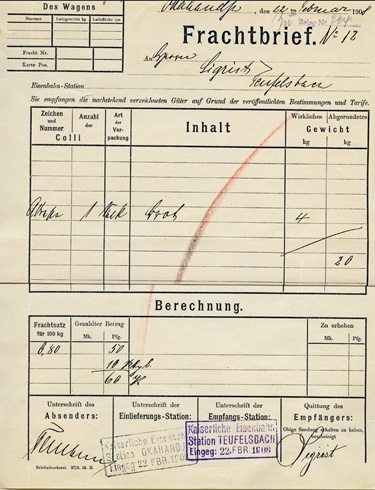 Des Wagens
Nummer Ladegewicht kg Ladefläche qm
Fracht Nr.
Karte Pos.
Okahandja, den 22ten Februar 1908
Frachtbrief. No 12
An Herrn
Sigrist
Teufelsbach
Eisenbahn-Station
Sie empfangen die nachstehend verzeichneten Güter auf Grund der veröffentlichten Bestimmungen und Tarife.
Zeichen und Nummer Anzahl der Art der Verpackung Inhalt Wirkliches Abgerundetes
Colli Gewicht
kg kg
1 Brot 4
20
Berechnung.
Frachtsatz für 100 kg Gezahlter Betrag Zu erheben
Mk. Pfg. Mk. Pfg.
6,80 50
10
60
Unterschrift des Absenders: Unterschrift der Einlieferungs-Station: Unterschrift der Empfangs-Station: Quittung des Empfängers:
Obige Sendung erhalten zu haben, bescheinigt
Kaiserliche Eisenbahn
Station OKAHANDJA
Eingeg 22 FBR. 1908
Kaiserliche Eisenbahn
Station TEUFELSBACH
Eingeg: 22. FBR. 1908
Sigrist
Reichsdruckerei.